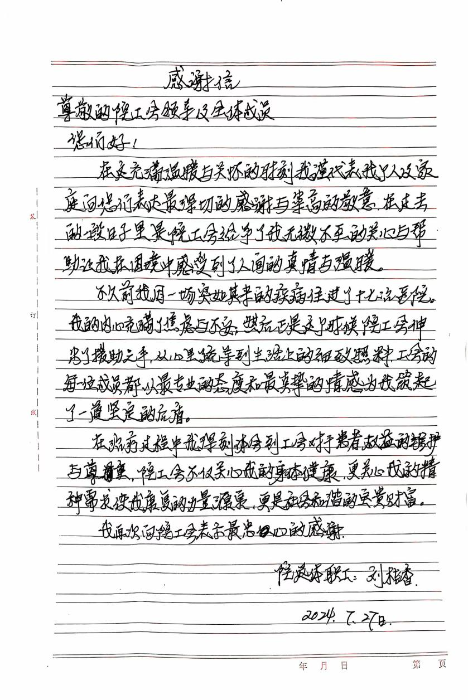 感谢信
尊敬的院工会领导及全体成员
您们好！
在这充满温暖与关怀的时刻我谨代表我个人及家
庭向您们表达最深切的感谢与崇高的敬意，在过去
的一段日子里是院工会给予了我无微不至的关心与帮
助让我在困境中感受到了人间的真情与温暖。
不久前我因一场突如其来的疾病住进了十七治医院。
我的内心充满了焦虑与不安，然后正是这个时候院工会伸
出了援助之手，从心里疏导到生活上的细致照料工会的
每一位成员都以最专业的态度和最真挚的情感为我筑起
了一道坚定的后盾。
在治病过程中我深刻体会到工会对于患者权益的维护
与尊重，院工会不仅关心我的身体健康，更关心我的精
神需求使我康复的力量源泉，更是社会和谐的宝贵财富。
我再次向院工会表示最忠心的感谢.
职工：刘桂香
2024.7.27日.
订
线
年 月 日
第 页